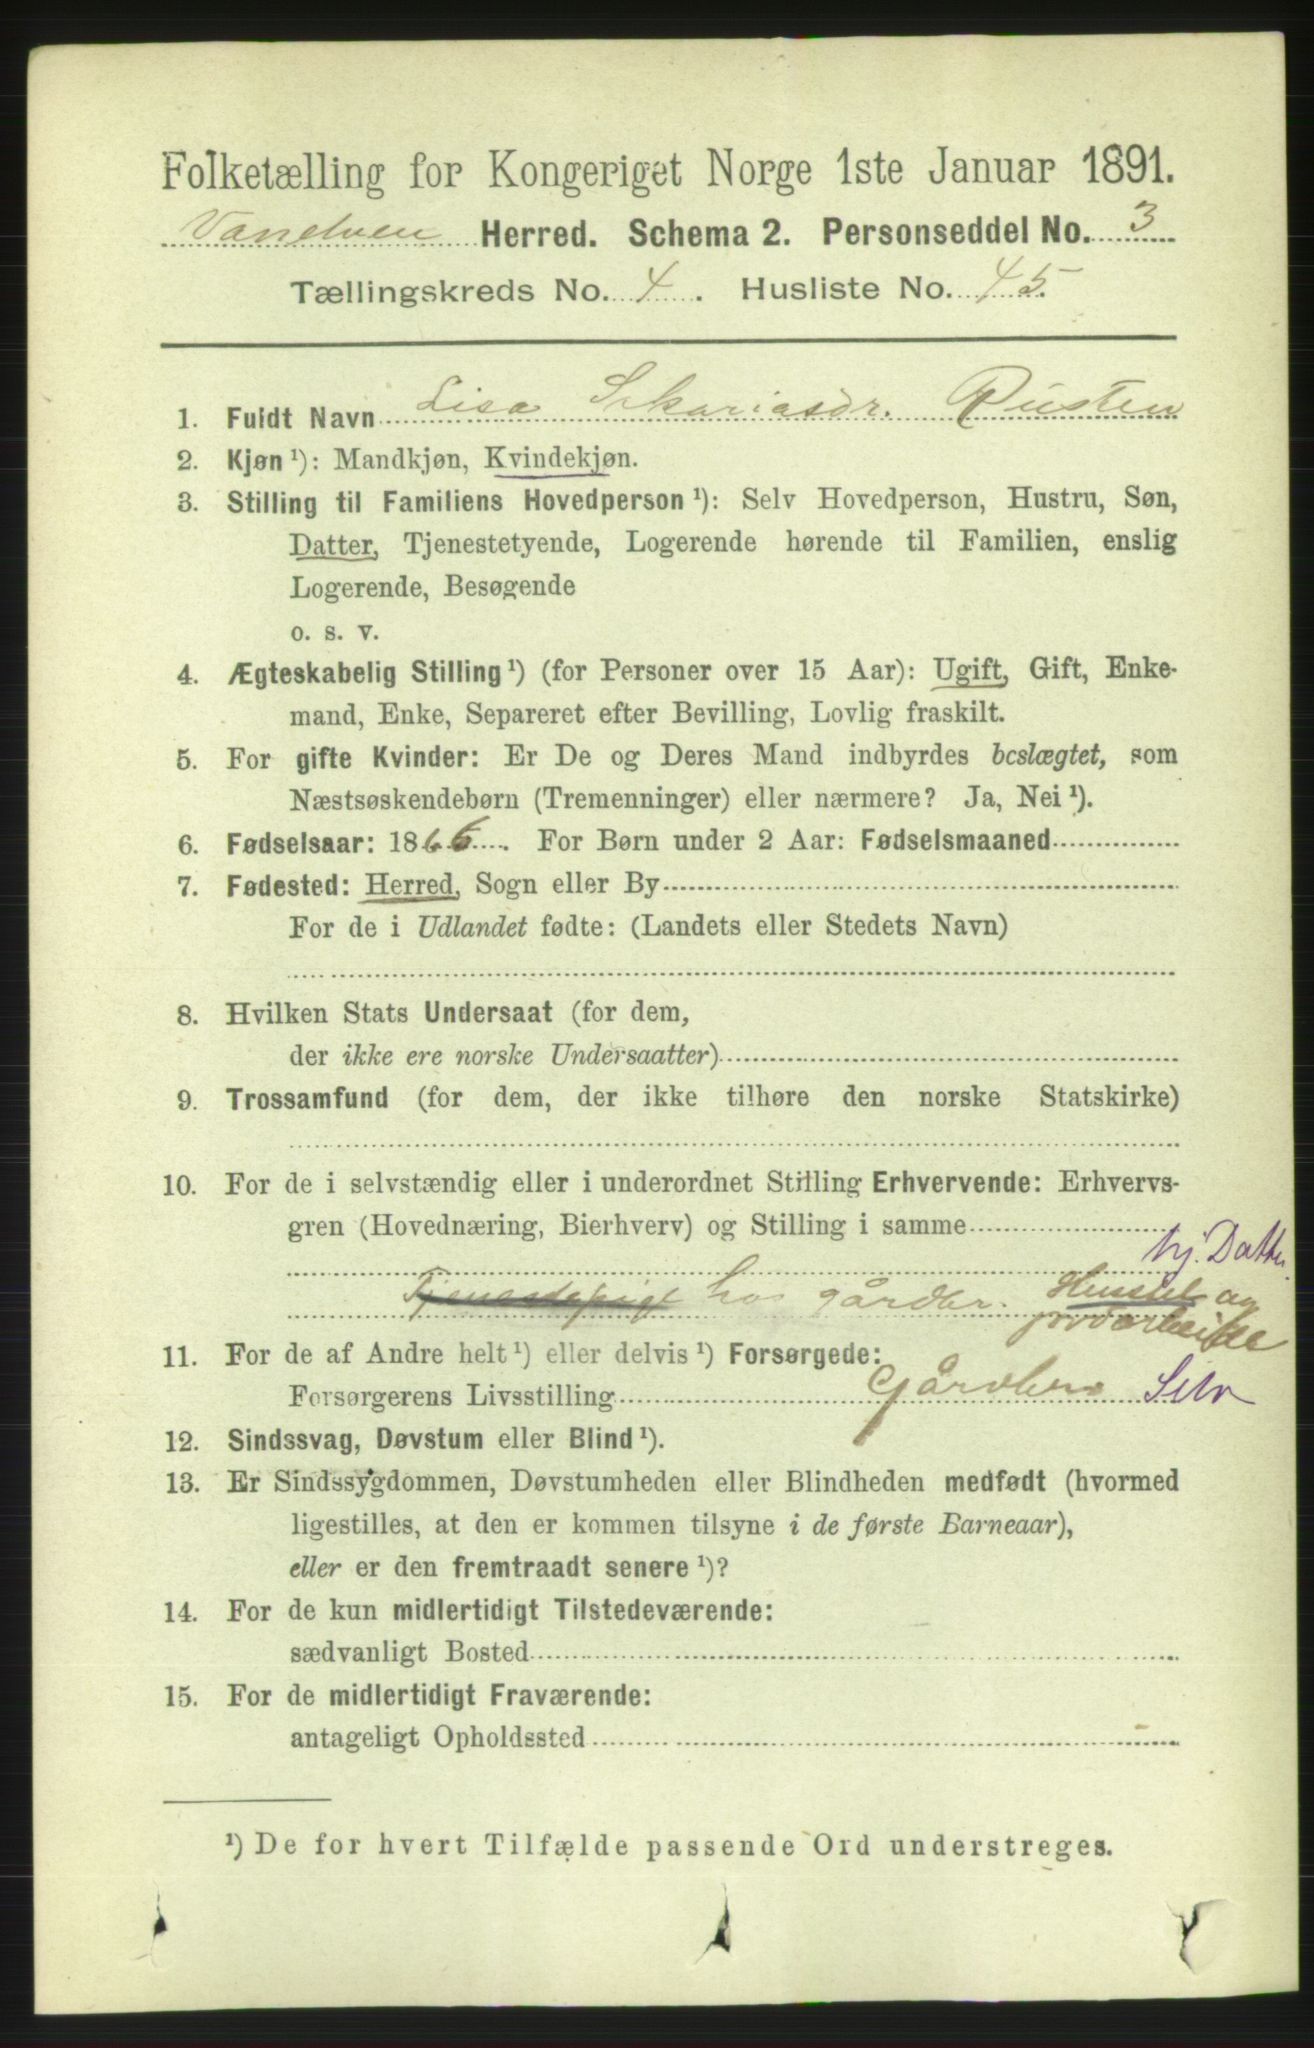 Folketælling for Kongeriget Norge 1ste Januar 1891.
Vanelven Herred. Schema 2. Personseddel No. 3
Tællingskreds No. 4. Husliste No. 45.
1. Fuldt Navn Lisa Sekariasdr. Rusten
2. Kjøn ¹): Mandkjøn, Kvindekjøn.
3. Stilling til Familiens Hovedperson ¹): Selv Hovedperson, Hustru, Søn,
Datter, Tjenestetyende, Logerende hørende til Familien, enslig
Logerende, Besøgende
o. s. v.
4. Ægteskabelig Stilling ¹) (for Personer over 15 Aar): Ugift, Gift, Enke-
mand, Enke, Separeret efter Bevilling, Lovlig fraskilt.
5. For gifte Kvinder: Er De og Deres Mand indbyrdes beslægtet, som
Næstsøskendebørn (Tremenninger) eller nærmere? Ja, Nei ¹).
6. Fødselsaar: 1866. For Børn under 2 Aar: Fødselsmaaned
7. Fødested: Herred, Sogn eller By
For de i Udlandet fødte: (Landets eller Stedets Navn)
8. Hvilken Stats Undersaat (for dem,
der ikke ere norske Undersaatter)
9. Trossamfund (for dem, der ikke tilhøre den norske Statskirke)
10. For de i selvstændig eller i underordnet Stilling Erhvervende: Erhvervs-
gren (Hovednæring, Bierhverv) og Stilling i samme
hj. Datter.
Tjenestepige hos gårdbr. Husstel og
jordarbeide
11. For de af Andre helt ¹) eller delvis ¹) Forsørgede:
Forsørgerens Livsstilling Gårdbr. Selv
12. Sindssvag, Døvstum eller Blind ¹).
13. Er Sindssygdommen, Døvstumheden eller Blindheden medfødt (hvormed
ligestilles, at den er kommen tilsyne i de første Barneaar),
eller er den fremtraadt senere ¹)?
14. For de kun midlertidigt Tilstedeværende:
sædvanligt Bosted
15. For de midlertidigt Fraværende:
antageligt Opholdssted
¹) De for hvert Tilfælde passende Ord understreges.